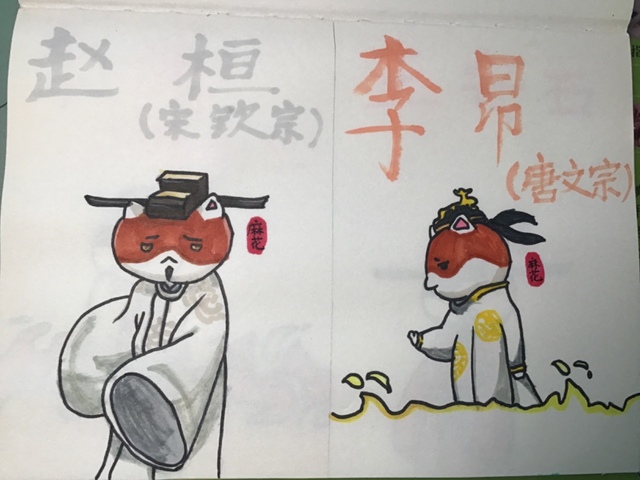 赵桓
(宋钦宗)
麻花
李昂
(唐文宗)
麻花